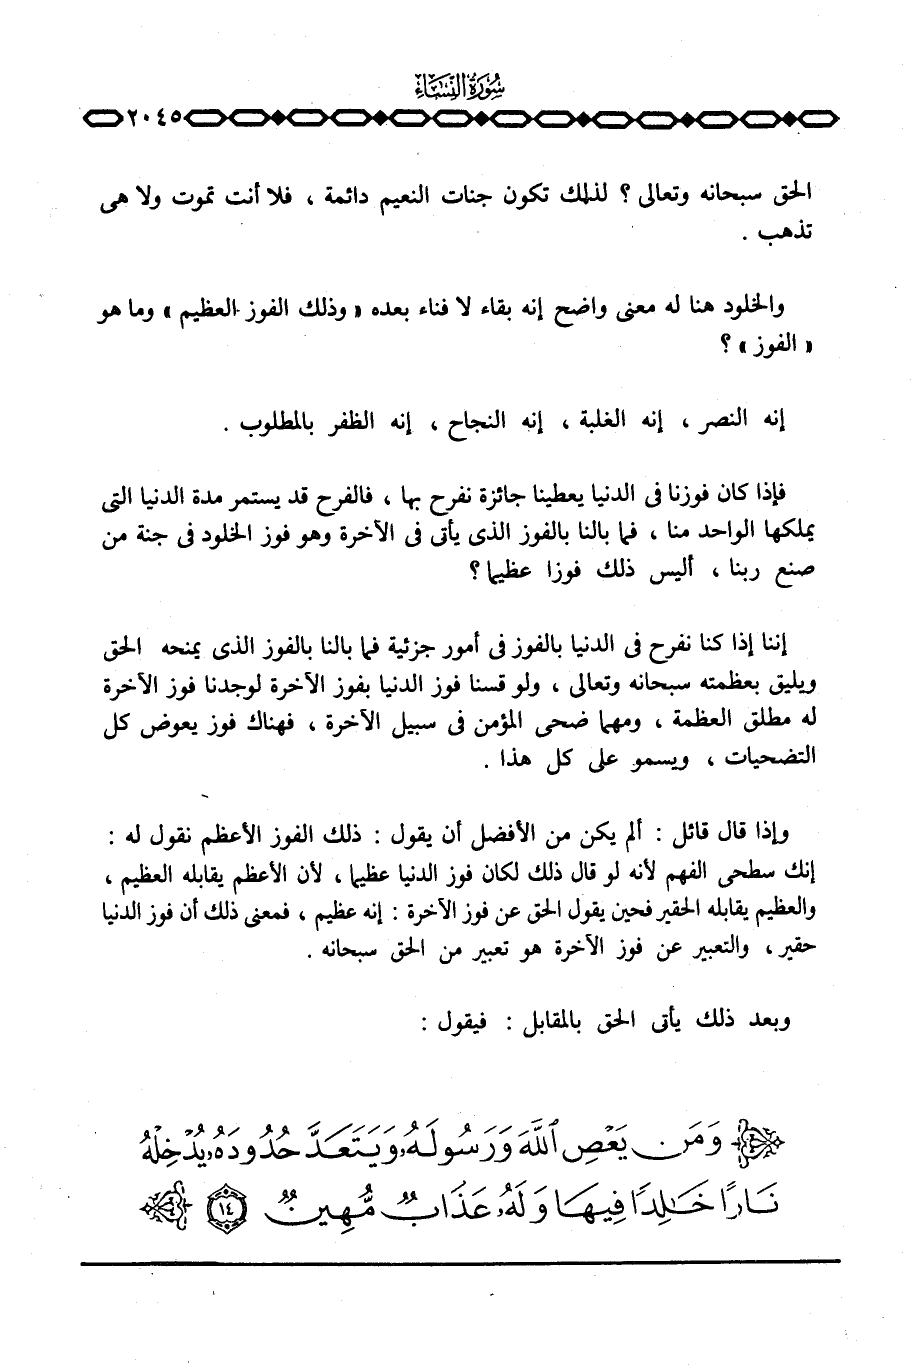 سُورَةُ النِّسَاء
٢٠٤٥
الحق سبحانه وتعالى ؟ لذلك تكون جنات النعيم دائمة ، فلا أنت تموت ولا هى
تذهب .
والخلود هنا له معنى واضح إنه بقاء لا فناء بعده « وذلك الفوز العظيم » وما هو
« الفوز » ؟
إنه النصر ، إنه الغلبة ، إنه النجاح ، إنه الظفر بالمطلوب .
فإذا كان فوزنا فى الدنيا يعطينا جائزة نفرح بها ، فالفرح قد يستمر مدة الدنيا التى
يملكها الواحد منا ، فما بالنا بالفوز الذى يأتى فى الآخرة وهو فوز الخلود فى جنة من
صنع ربنا ، أليس ذلك فوزا عظيما ؟
إننا إذا كنا نفرح فى الدنيا بالفوز فى أمور جزئية فما بالنا بالفوز الذى يمنحه الحق
ويليق بعظمته سبحانه وتعالى ، ولو قسنا فوز الدنيا بفوز الآخرة لوجدنا فوز الآخرة
له مطلق العظمة ، ومهما ضحى المؤمن فى سبيل الآخرة ، فهناك فوز يعوض كل
التضحيات ، ويسمو على كل هذا .
وإذا قال قائل : ألم يكن من الأفضل أن يقول : ذلك الفوز الأعظم نقول له :
إنك سطحى الفهم لأنه لو قال ذلك لكان فوز الدنيا عظيما ، لأن الأعظم يقابله العظيم ،
والعظيم يقابله الحقير فحين يقول الحق عن فوز الآخرة : إنه عظيم ، فمعنى ذلك أن فوز الدنيا
حقير ، والتعبير عن فوز الآخرة هو تعبير من الحق سبحانه .
وبعد ذلك يأتى الحق بالمقابل : فيقول :
وَمَن يَعْصِ ٱللَّهَ وَرَسُولَهُۥ وَيَتَعَدَّ حُدُودَهُۥ يُدْخِلْهُ
نَارًا خَٰلِدًا فِيهَا وَلَهُۥ عَذَابٌ مُّهِينٌ ١٤